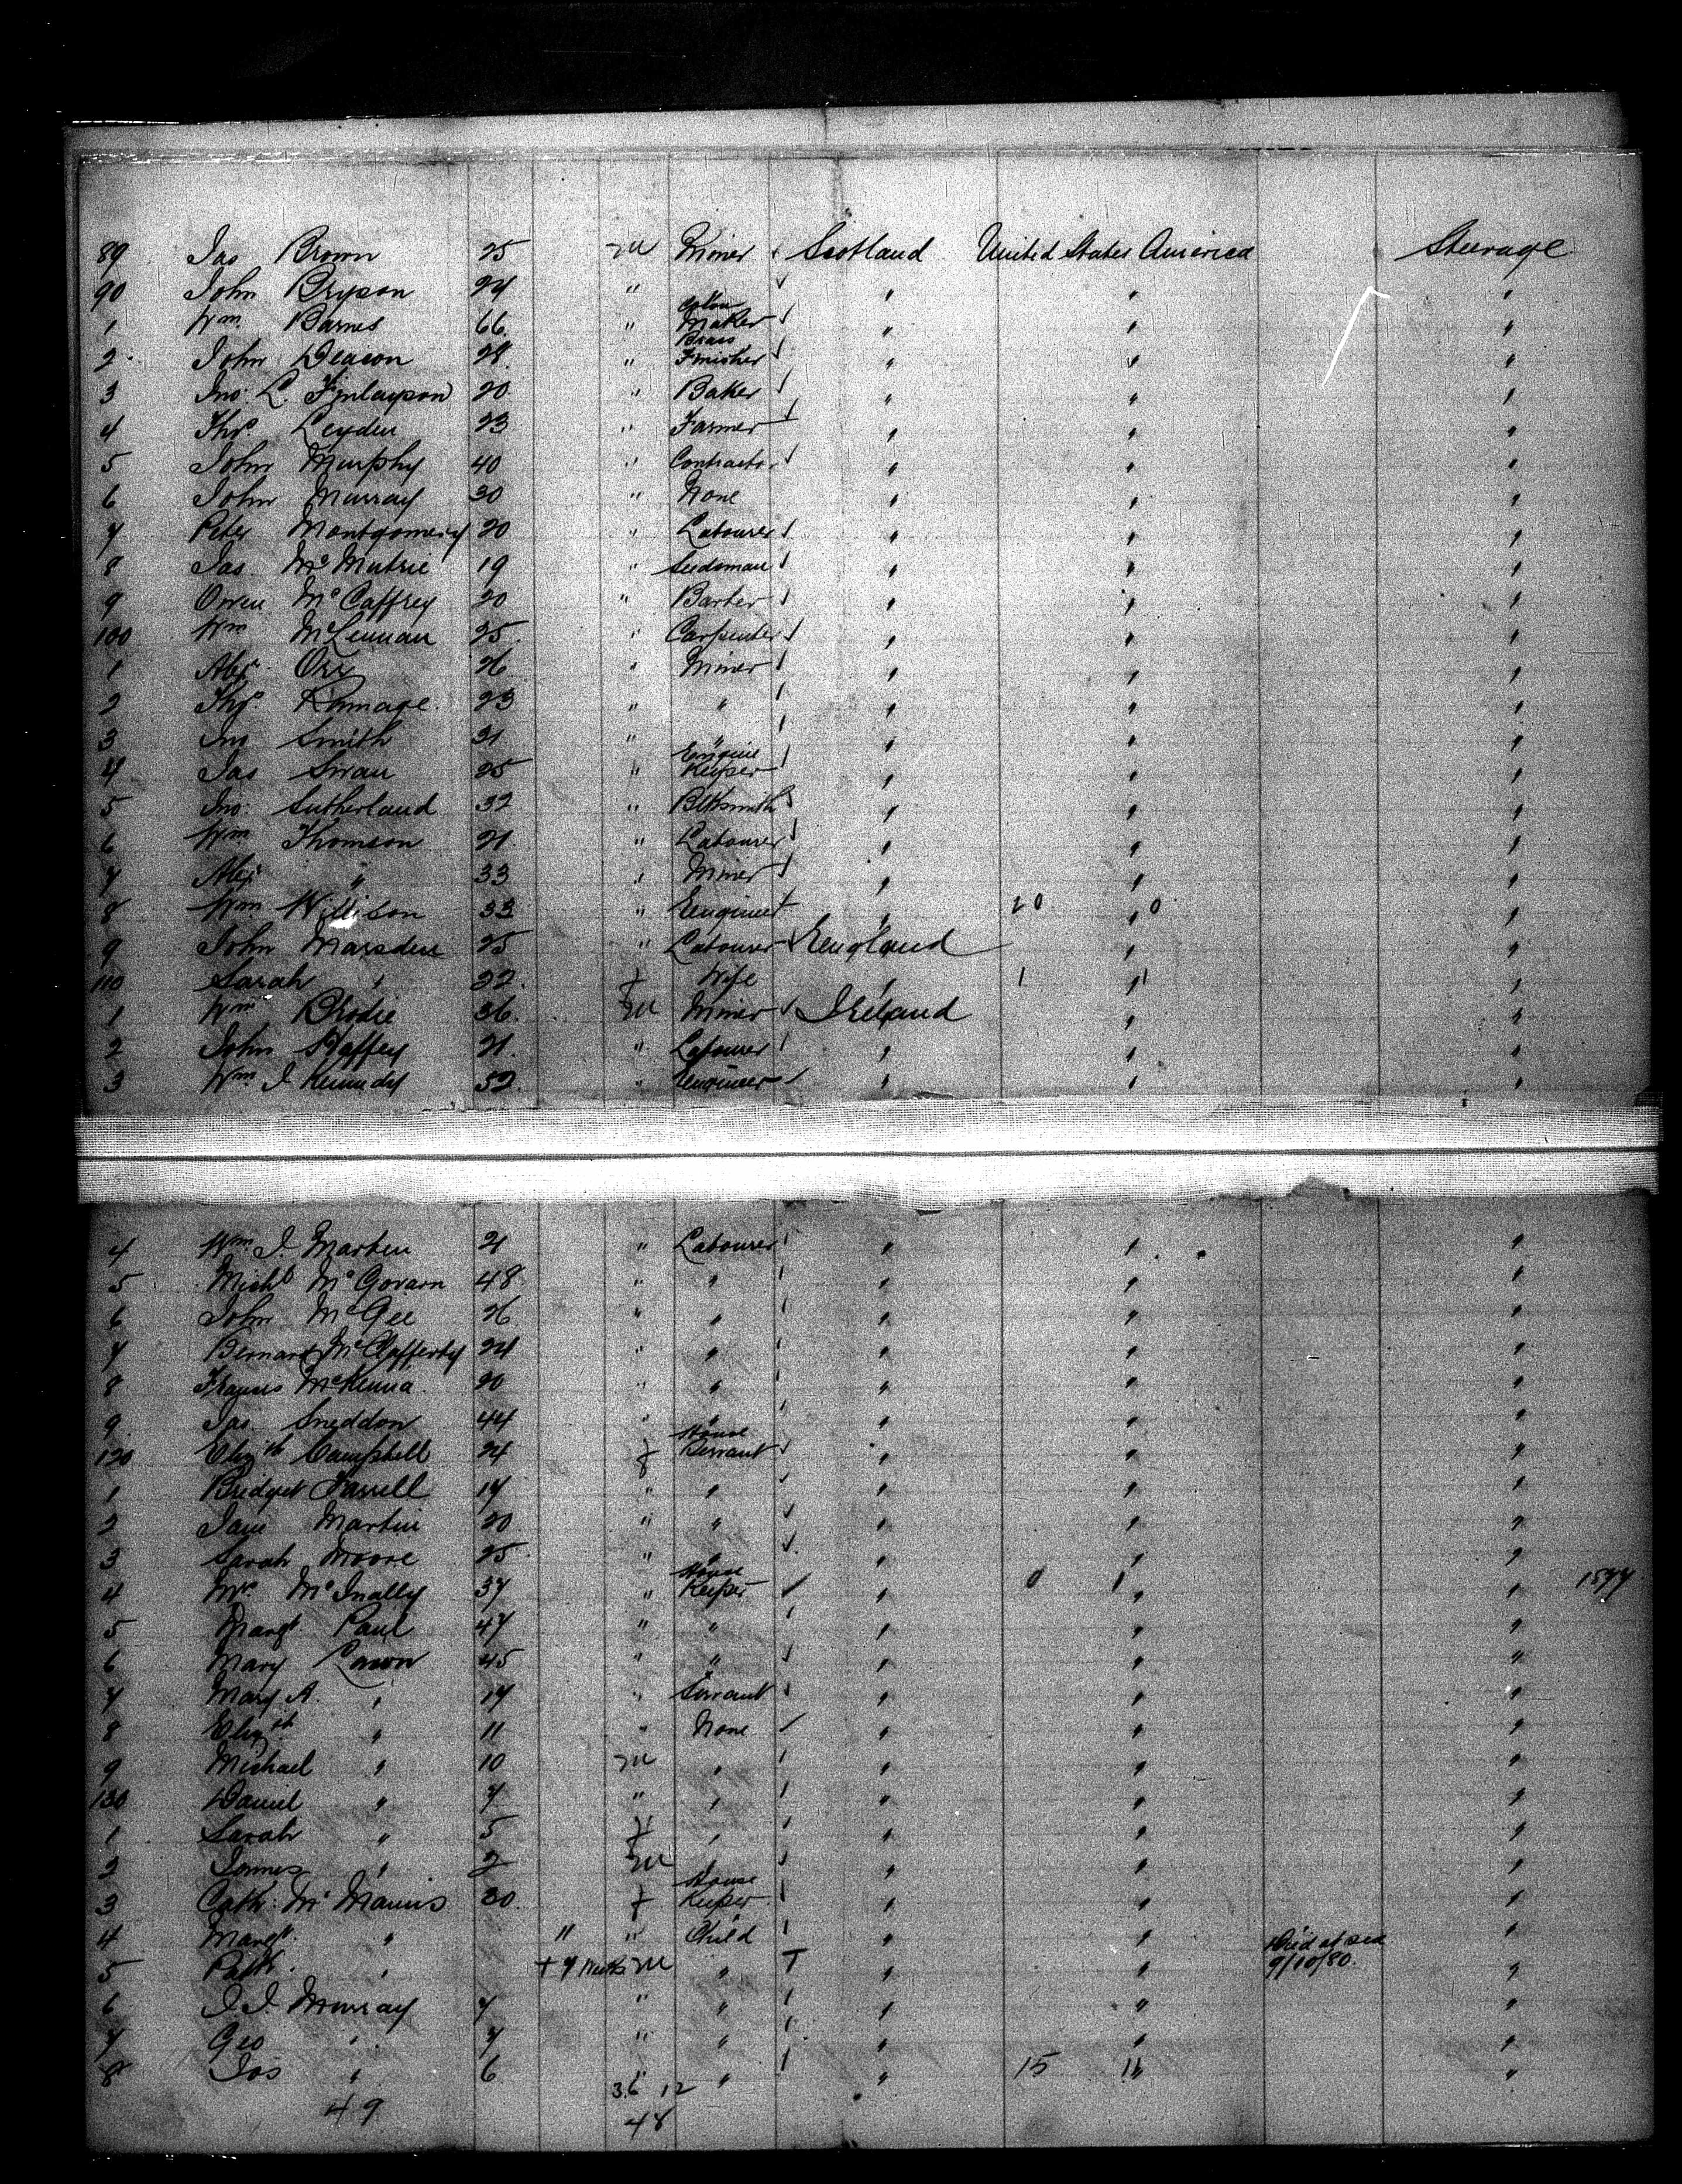 89 Jas Brown 25 M Miner Scotland United States America Steerage
90 John Bryson 24 " " " "
1 Wm Barnes 66 " Maker " " "
2 John Deacon 28 " Brass Finisher " " "
3 Jno. L. Finlayson 20 " Baker " " "
4 Thos. Leyden 23 " Farmer " " "
5 John Murphy 40 " Contractor " " "
6 John Murray 30 " None " " "
7 Peter Montgomery 20 " Labourer " " "
8 Jas. McMutrie 19 " Seedsman " " "
9 Owen McCaffrey 20 " " " "
100 Wm McLennan 25 " Carpenter " " "
1 Alexr Orr 26 " Miner " " "
2 Thos. Ramage 23 " " " " "
3 Jno Smith 21 " " " " "
4 Jas Swan 25 " Engine Keeper " " "
5 Jno. Sutherland 32 " Blksmith " " "
6 Wm Thomson 21 " Labourer " " "
7 Alexr " 33 " Miner " " "
8 Wm Willison 33 " Engineer " 20 " 0 "
9 John Marsden 25 " Labourer England " "
110 Sarah " 22 f Wife " 1 " 1 "
1 Wm Brodie 36 M Miner Ireland " "
2 John 21 " Labourer " " "
3 Wm J Kennedy 52 " Engineer " " "
4 Wm J Martin 21 " Labourer " " "
5 Michl McGovarn 48 " " " " "
6 John McGee 26 " " " " "
7 Bernard McClafferty 24 " " " " "
8 Francis McKenna 20 " " " " "
9 Jas. Sneddon 44 " " " " "
120 Elizth Campbell 24 f House Servant " " "
1 Bridget Farrell 17 " " " " "
2 Jane Martin 20 " " " " "
3 Sarah Moore 25 " " " " "
4 Mrs McInally 37 " House Keeper " 0 1 " " 1577
5 Margt Paul 47 " " " " "
6 Mary 45 " " " " "
7 Mary A. " 17 " Servant " " "
8 Elizth " 11 " None " " "
9 Michael " 10 M " " " "
130 Daniel " 7 " " " " "
1 Sarah " 5 f " " " "
2 James " 2 M " " " "
3 Cath. McManus 30 f House Keeper " " "
4 Margt. " " " Child " " "
5 Patk. " + 7 Weeks M " " " Died at sea 9/10/80. "
6 J J Murray 7 " " " " "
7 Geo " 7 " " " " "
8 Jos " 6 " " " 15 11 "
49 36 12
48